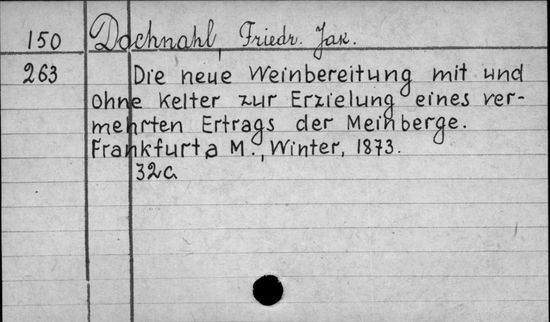 150 Dochnahl, Friedr. Jak.
263 Die neue Weinbereitung mit und
ohne Kelter zur Erzielung eines ver-
mehrten Ertrags der Meinberge.
Frankfurt a M., Winter, 1873.
32a